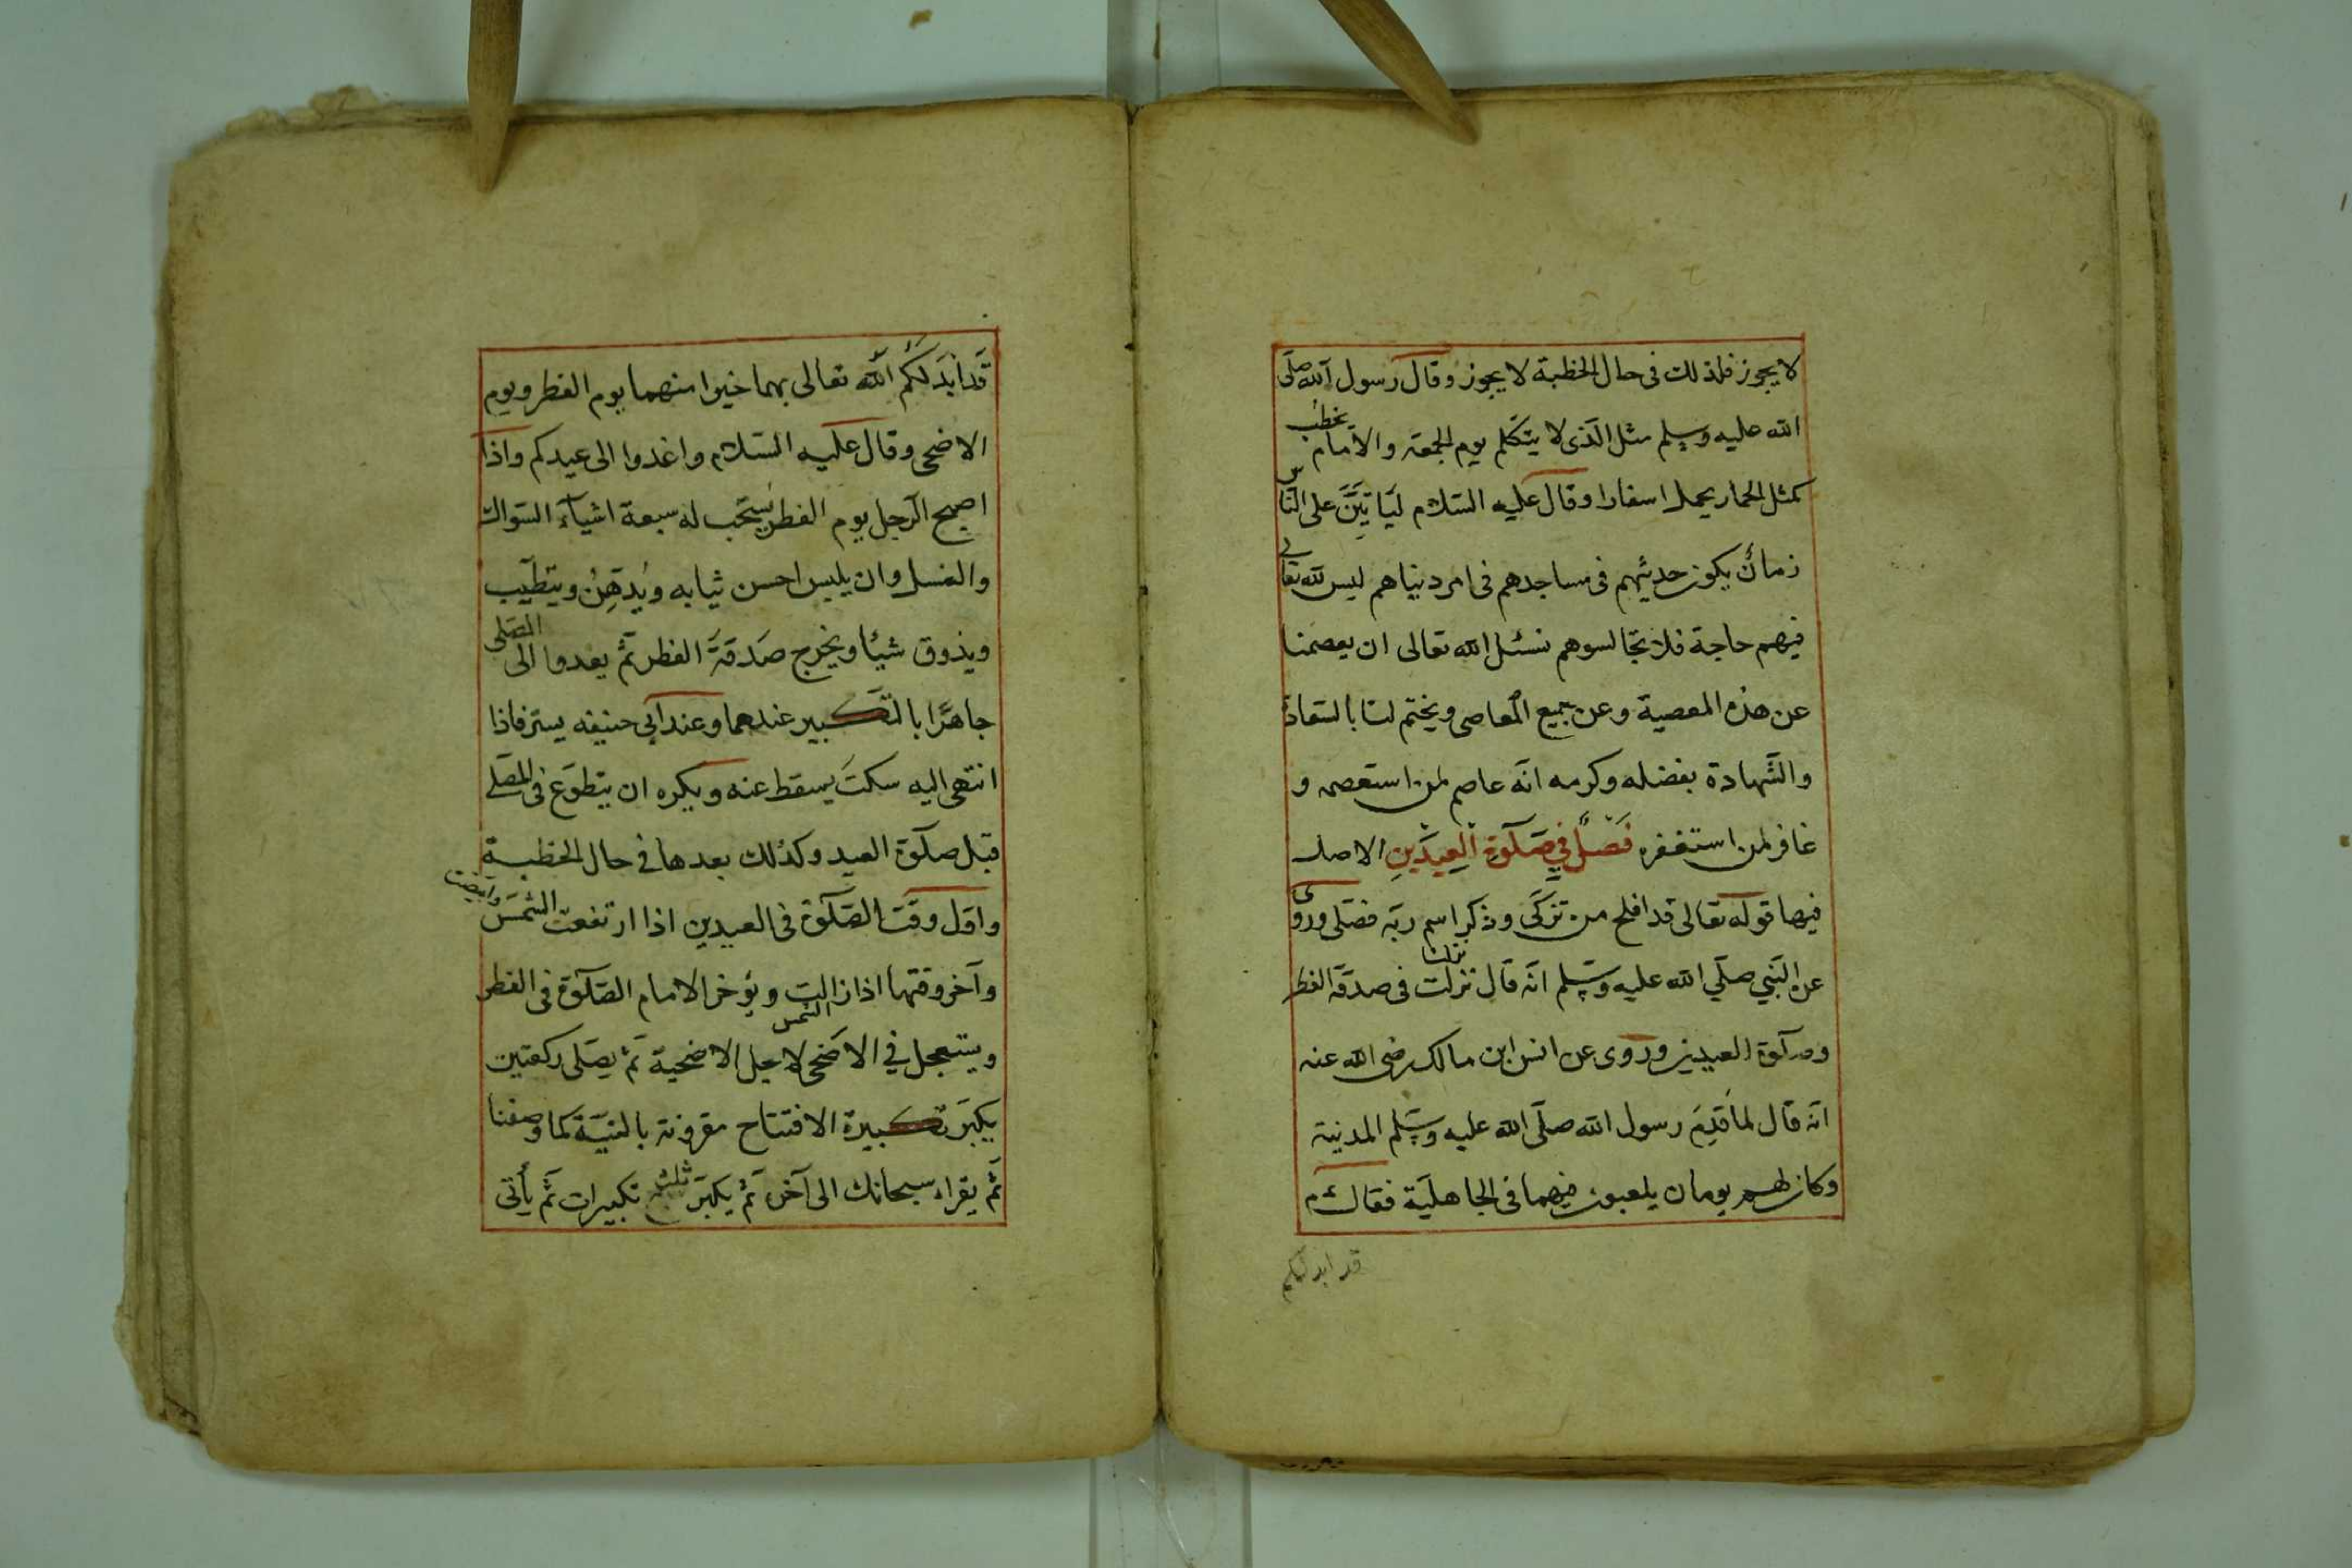 لا يجوز فلذلك فى حال الخطبة لا يجوز وقال رسول الله صلى
الله عليه وسلم مثل الّذى لا يتكلم يوم الجمعة والامام يخطب
كمثل الحمار يحمل اسفارا وقال عليه السّلام ليَأتِيَنَّ على النّاس
زمانٌ يكون حديثهم فى مساجدهم فى امر دنياهم ليس لله تعالى
فيهم حاجة فلا تجالسوهم نسئل الله تعالى ان يعصمنا
عن هذه المعصية وعن جميع المعاصى ويختم لنا بالسّعادة
والشّهادة بفضله وكرمه انّه عاصم لمن استعصمه و
غافر لمن استغفره فَصْلٌ فِي صَلٰوةِ الْعِيدَيْنِ الاصل
فيها قوله تعالى قد افلح من تزكّى وذكر اسم ربّه فصلّى وروى
عن النّبي صلّي الله عليه وسلّم انّه قال نزلت فى صدقة الفطر
وصلٰوة العيدين وروى عن انس ابن مالك رضى الله عنه
انّه قال لما قَدِمَ رسول الله صلّى الله عليه وسلّم المدينة
وكان لهم يومان يلعبون فيهما فى الجاهليّة فقال م
قد ابدلكم
قَد ابَدَلَكُم اللّه تعالى بهما خيرا منهما يوم الفطر ويوم
الاضحى وقال عليه السّلام واغدوا الى عيدكم واذا
اصبح الرّجل يوم الفطر يُستَحّب له سبعة اشيآء السّواك
والغسل وان يلبس احسن ثيابه ويُدّهِنُ ويتطيّب
ويذوق شيئا ويخرج صَدَقَةَ الفطر ثمّ يغدوا الى المصلى
جاهرًا بالتّكبير عندهما وعند ابى حنيفه يسرّ فاذا
انتهى اليه سكتَ يسقط عنه ويكره ان يتطوّع فى المصلّے
قبل صلٰوة العيد وكذلك بعدها فى حال الخطبة
واوّل وقت الصّلٰوة فى العيدين اذا ارتفعت الشمس وابيضت
وآخر وقتها اذا زالت الشمس ويؤخر الامام الصّلٰوة فى الفطر
ويستعجل في الاضحى لاجل الاضحية ثمّ يصلى ركعتين
يكبّر تكبيرة الافتتاح مقرونة بالنيّة كما وصفنا
ثمّ يقراء سبحانك الى آخره ثمّ يكبّر ثلث تكبيرات ثمّ يأتى